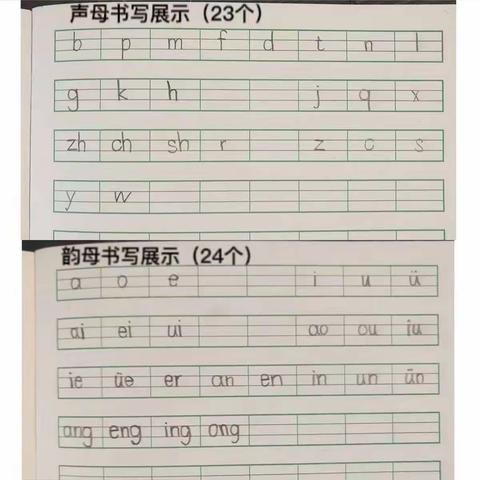 声母书写展示（23个）
b p m f d t n l
g k h j q x
zh ch sh r z c s
y w
韵母书写展示（24个）
a o e i u ü
ai ei ui ao ou iu
ie üe er an en in un ün
ang eng ing ong